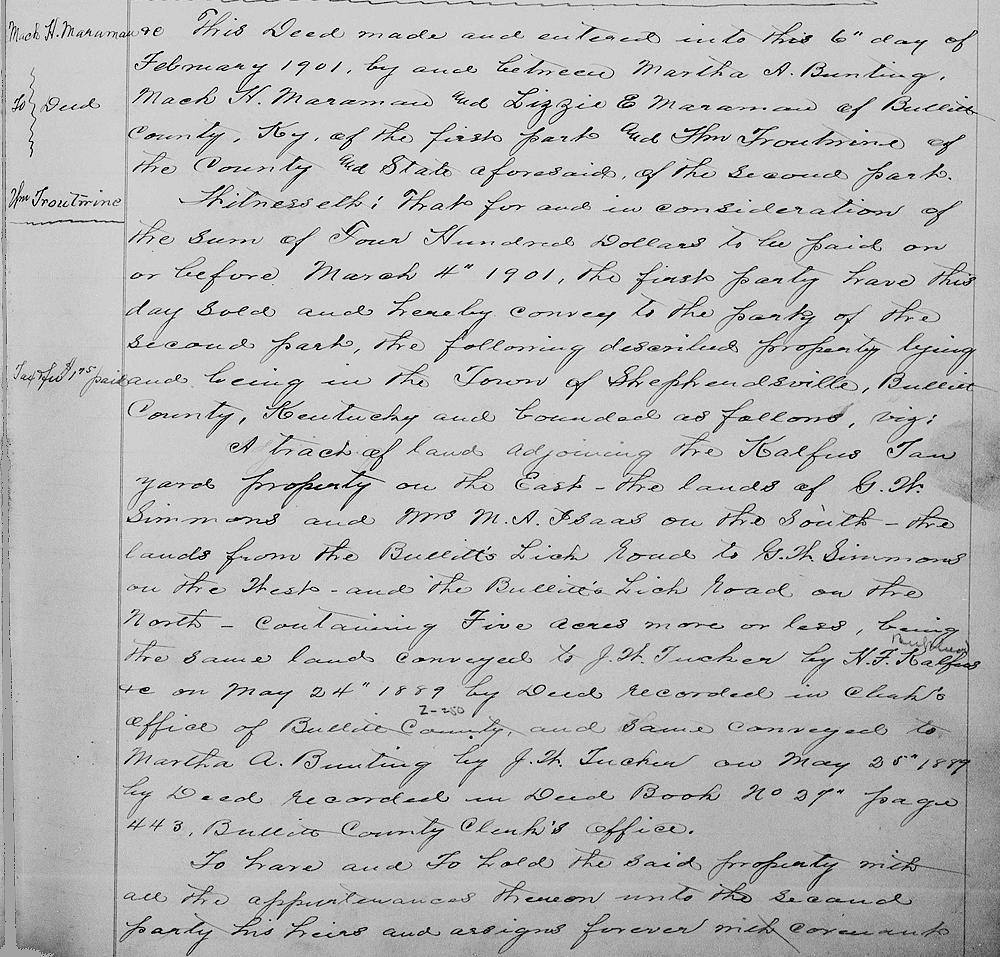 Mack H. Maraman &c
To Deed
Wm Troutwine
Tax & fee $1.75 paid
This Deed made and entered into this 6" day of
February 1901, by and between Martha A. Bunting,
Mack H. Maraman and Lizzie E Maraman of Bullitt
County, Ky, of the first part and Wm Troutwine of
the County and State aforesaid, of the second part.
Witnesseth: That for and in consideration of
the sum of Four Hundred Dollars to be paid on
or before March 4" 1901, the first party have this
day sold and hereby convey to the party of the
second part, the following described property lying
and being in the Town of Shepherdsville, Bullitt
County, Kentucky and bounded as follows, viz:
A tract of land adjoining the Kalfus Tan
yard property on the East - the lands of G. W.
Simmons and Mrs M. A. Isaas on the South - the
lands from the Bullitt's Lick Road to G. W. Simmons
on the West - and the Bullitt's Lick Road on the
North - containing Five acres more or less, being
the same land conveyed to J. W. Tucker by H. F. Kalfus
&c on May 24" 1889 by Deed recorded in Clerk's
Z-250
office of Bullitt County, and same conveyed to
Martha A. Bunting by J. W. Tucker on May 25" 1889
by Deed recorded in Deed Book No 27" page
443, Bullitt County Clerk's office.
To have and To hold the said property with
all the appurtenances thereon unto the second
party his heirs and assigns forever with covenants